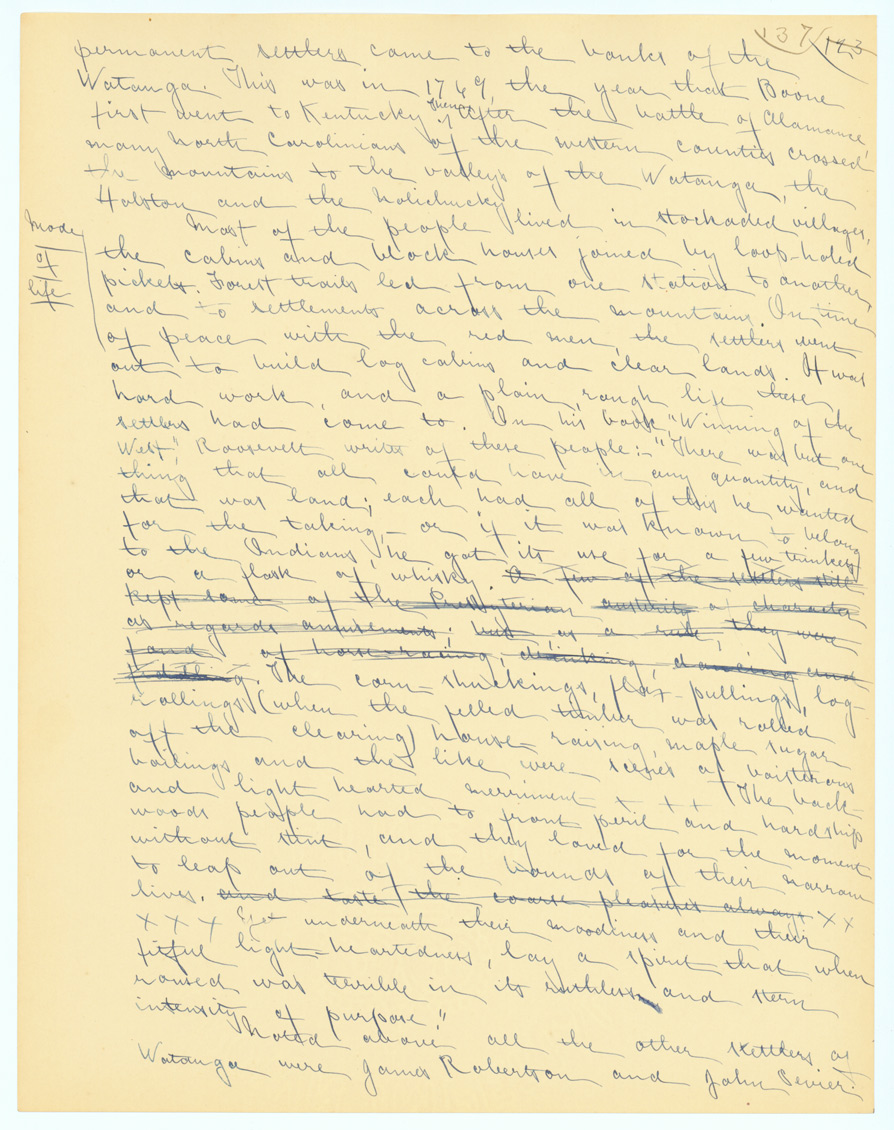 137 123
permanent settlers came to the banks of the
Watauga. This was in 1769, the year that Boone
first went to Kentucky. After the battle of Alamance,
many North Carolinians of the western counties crossed
the mountains to the valleys of the Watauga, the
Holston and the Nolichucky.
Mode
of
life
Most of the people lived in stockaded villages,
the cabins and block houses joined by loop-holed
pickets. Forest trails led from one station to another,
and to settlements across the mountains. In time
of peace with the red men, the settlers went
out to build log cabins and clear lands. It was
hard work, and a plain, rough life these
settlers had come to. In his book, "Winning of the
West", Roosevelt writes of these people:- "There was but one
thing that all could have in any quantity, and
that was land; each had all of this he wanted
for the taking,- or if it was known to belong
to the Indians, he got its use for a few trinkets
or a flask of whisky. A few of the settlers still
kept some of the Presbyterian austerity of character
as regards amusements; but as a rule, they were
fond of horse-racing, drinking, dancing and
fiddling. The corn-shuckings, flax-pullings, log-
rollings (when the felled timber was rolled
off the clearing) house-raising, maple sugar
boilings and the like were scenes of boisterous
and light hearted merriment x x x The back-
woods people had to front peril and hardship
without stint, and they loved for the moment
to leap out of the bounds of their narrow
lives. and taste the coarse pleasures always x x
x x x Yet underneath their moodiness and their
fitful light-heartedness, lay a spirit that when
roused was terrible in its ruthless and stern
intensity of purpose."
Noted above all the other settlers of
Watauga were James Robertson and John Sevier.